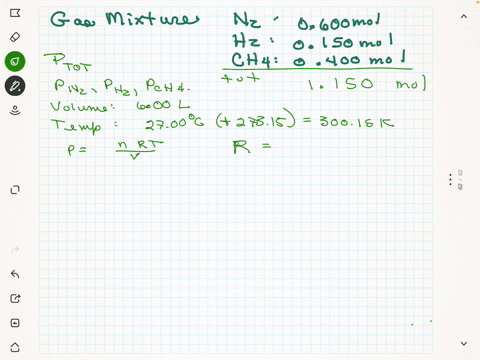 Gas Mixture
N2: 0.600 mol
H2: 0.150 mol
CH4: 0.400 mol
tot 1.150 mol
PTOT
PN2, PH2, PCH4.
Volume: 6.00 L
Temp: 27.00°C (+273.15) = 300.15K
P = nRT/V
R =